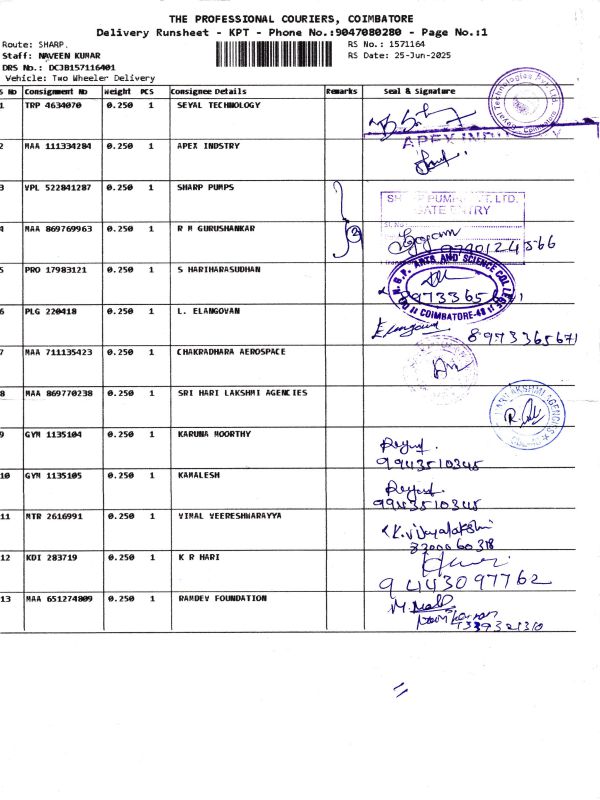 THE PROFESSIONAL COURIERS, COIMBATORE
Delivery Runsheet - KPT - Phone No.:9047080280 - Page No.:1
Route: SHARP.
RS No.: 1571164
Staff: NAVEEN KUMAR
RS Date: 25-Jun-2025
DRS No.: DCJB157116401
Vehicle: Two Wheeler Delivery
S No Consignment No Weight PCS Consignee Details Remarks Seal & Signature
1 TRP 4634070 0.250 1 SEYAL TECHNOLOGY
2 MAA 111334284 0.250 1 APEX INDSTRY
3 VPL 522841287 0.250 1 SHARP PUMPS
GATE ENTRY
4 MAA 869769963 0.250 1 R M GURUSHANKAR
5 PRO 17983121 0.250 1 S HARIHARASUDHAN
ARTS AND SCIENCE COLLEGE
COIMBATORE-48
6 PLG 220418 0.250 1 L. ELANGOVAN
Elangovan 8973365671
7 MAA 711135423 0.250 1 CHAKRADHARA AEROSPACE
8 MAA 869770238 0.250 1 SRI HARI LAKSHMI AGENCIES
9 GYM 1135104 0.250 1 KARUNA MOORTHY
9943510345
10 GYM 1135105 0.250 1 KAMALESH
9943510345
11 MTR 2616991 0.250 1 VIMAL VEERESHWARAYYA
K.Vijayalakshmi
12 KDI 283719 0.250 1 K R HARI
9443097762
13 MAA 651274809 0.250 1 RAMDEV FOUNDATION